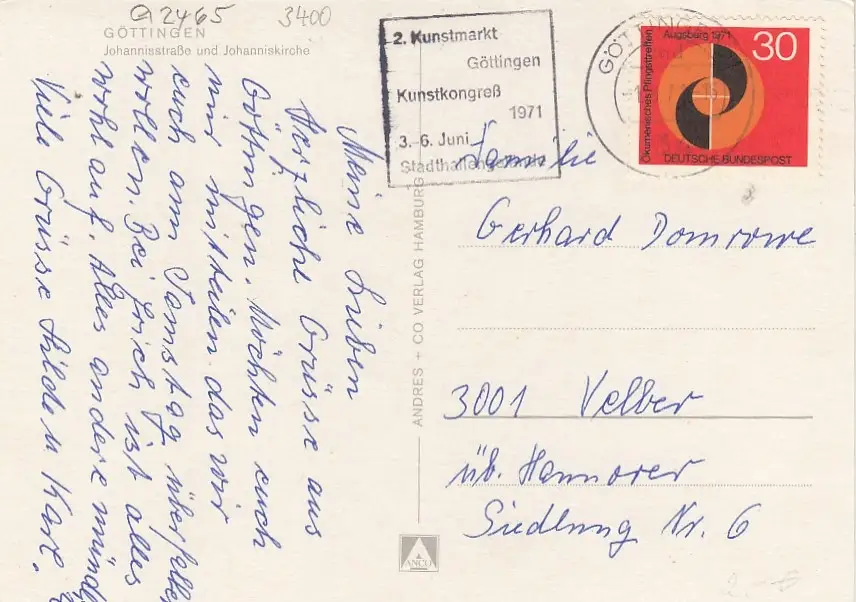 a2465
3400
GÖTTINGEN
Johannisstraße und Johanniskirche
Meine Lieben
Herzliche Grüsse aus
Göttingen. Möchten euch
mir mitteilen das wir
euch am Samstag überfallen
wollen. Bei ist alles
wohl auf. Alles andere mündl
Viele Grüsse Hilde u Karl.
ANDRES + CO VERLAG HAMBURG
ANCO
2. Kunstmarkt
Göttingen
Kunstkongreß
1971
3.-6. Juni
Stadthallengelände
GÖTTINGEN
Ökumenisches Pfingsttreffen
Augsburg 1971
30
DEUTSCHE BUNDESPOST
Familie
Gerhard Domrowe
3001 Velber
üb. Hannover
Siedlung Nr. 6